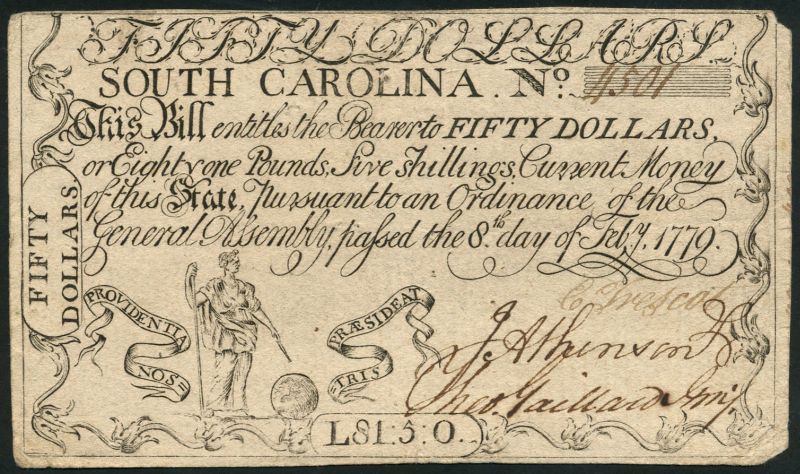 FIFTY DOLLARS
SOUTH CAROLINA. No. 4501
This Bill entitles the Bearer to FIFTY DOLLARS,
or Eighty one Pounds, Five Shillings, Current Money
of this State, Pursuant to an Ordinance of the
General Assembly, passed the 8.th day of Feb.y. 1779.
FIFTY
DOLLARS
PROVIDENTIA
NOS
PRÆSIDEAT
TRIS
C Trescot
J. Atkinson
Theo. Gaillard Junr
L81:5:0.